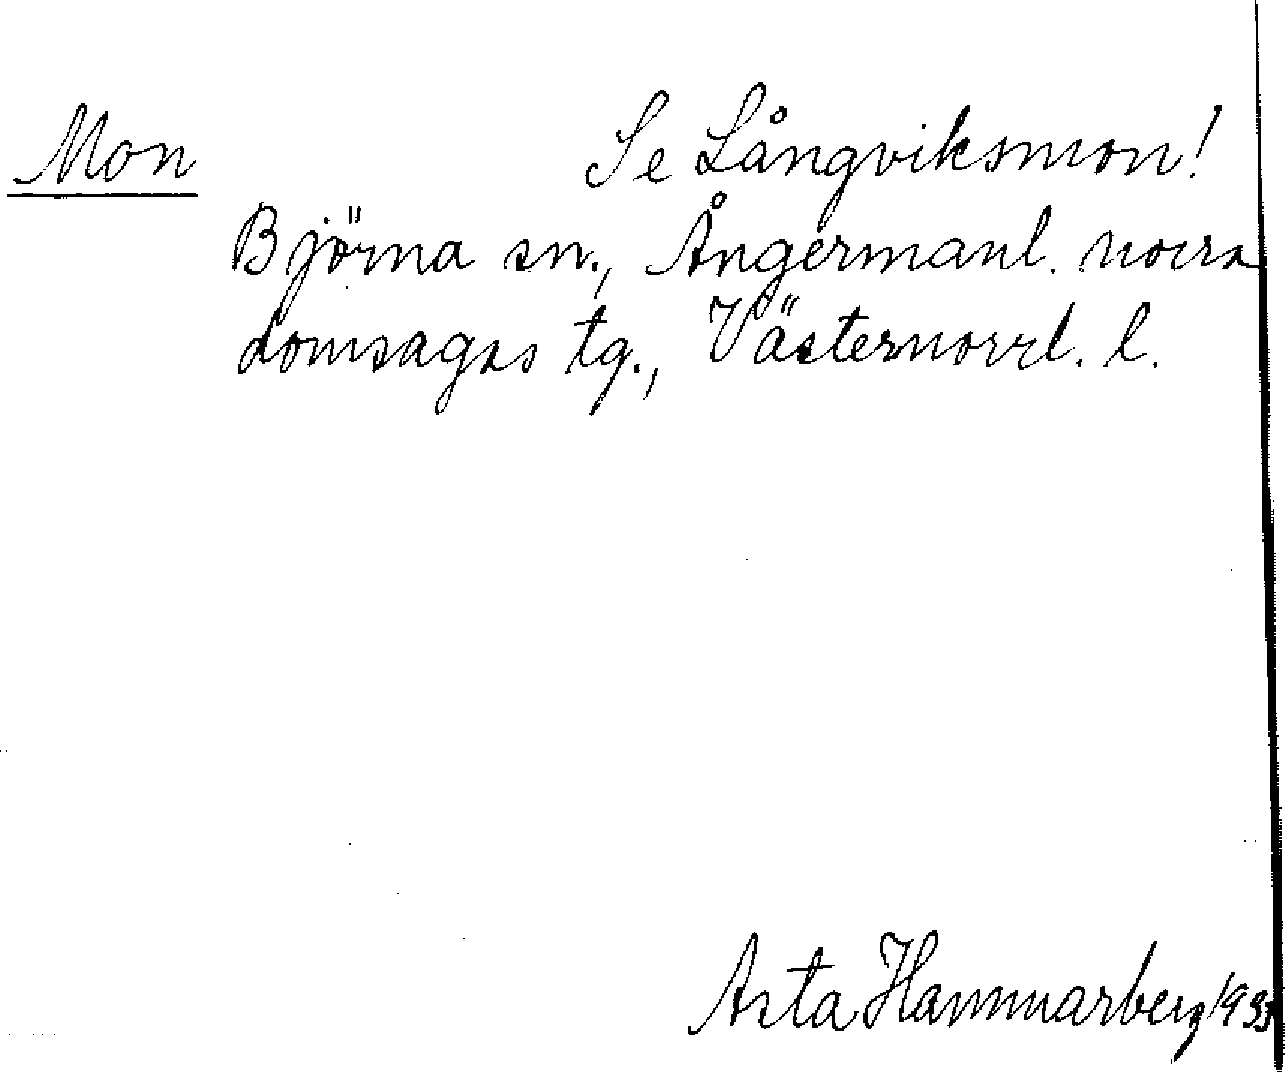 Mon Se Långviksmon!
Björna sn., Ångermanl. norra
domsagas tg., Västernorrl. l.
Asta Hammarberg